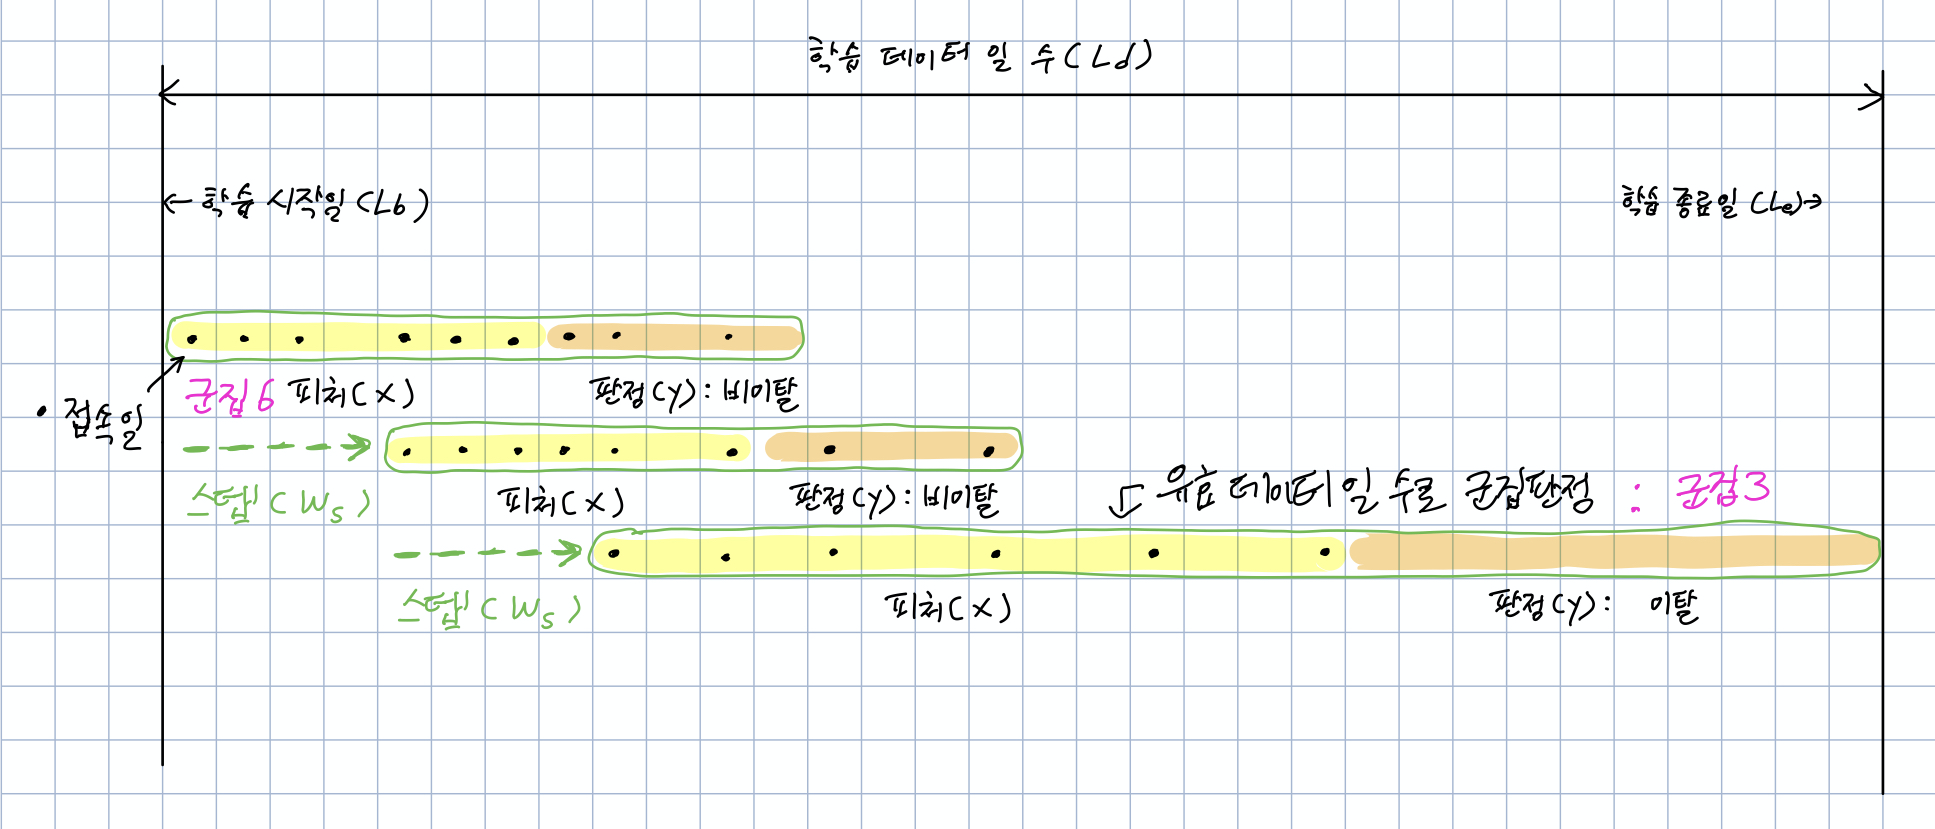 학습 데이터 일 수(Ld)
← 학습 시작일(Lb)
학습 종료일(Le)→
군집6 피처(X)
판정(y): 비이탈
• 접속일
스텝(Ws)
피처(X)
판정(y): 비이탈
유효 데이터 일 수로 군집판정 : 군집3
스텝(Ws)
피처(X)
판정(y): 이탈